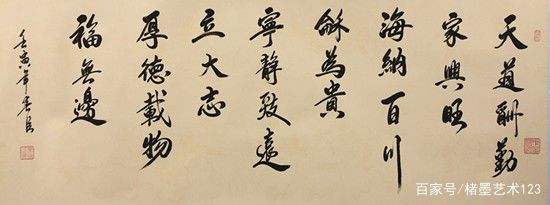 天道酬勤
家興旺
海納百川
龢為貴
寧静致遠
立大志
厚德載物
福無邊
壬寅年
百家号/楮墨艺术123